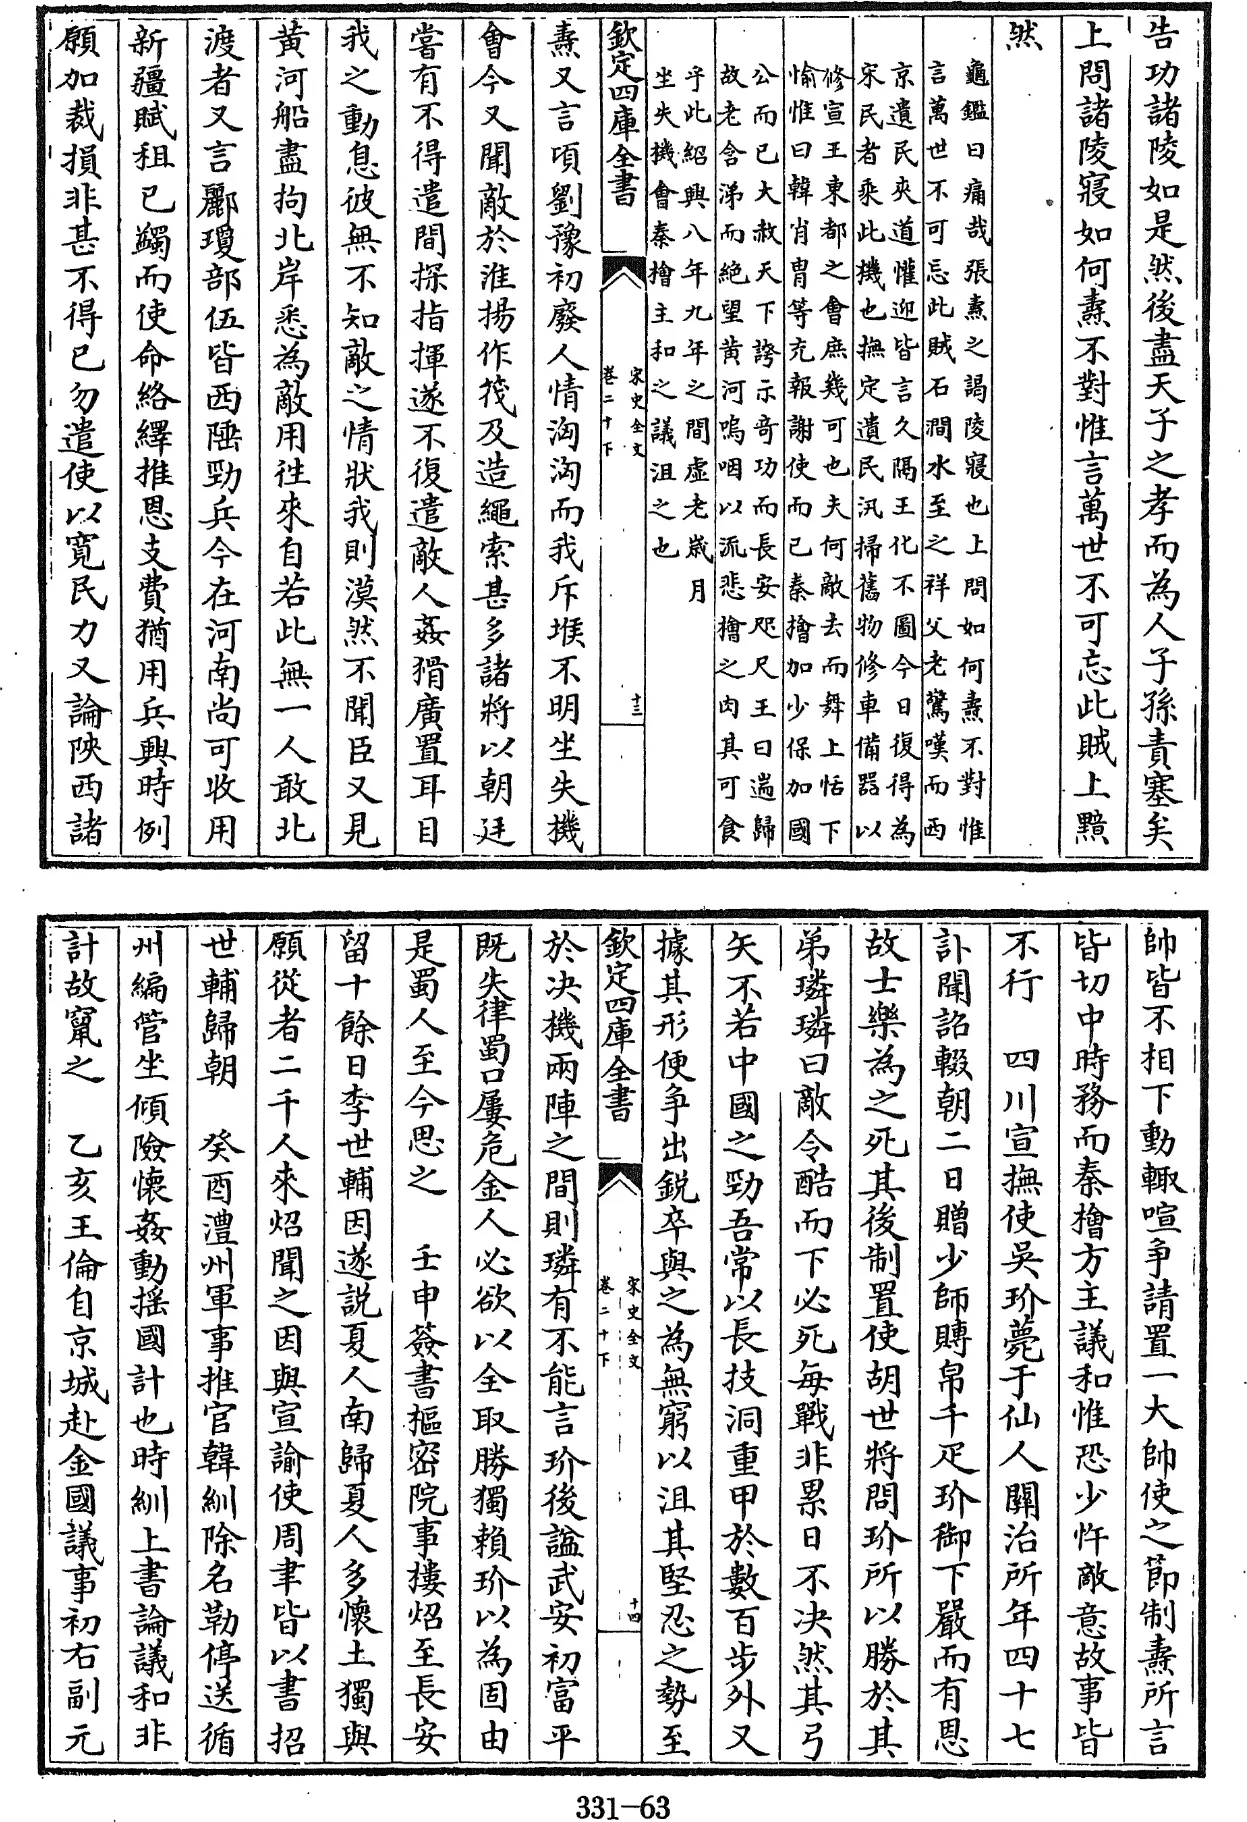 告功諸陵如是然後盡天子之孝而為人子孫責塞矣
上問諸陵寢如何燾不對惟言萬世不可忘此賊上黯
然
龜鑑曰痛哉張燾之謁陵寢也上問如何燾不對惟
言萬世不可忘此賊石澗水至之祥父老驚嘆而西
京遺民夾道懽迎皆言久隔王化不圖今日復得為
宋民者乘此機也撫定遺民汛掃舊物修車備器以
修宣王東都之會庶幾可也夫何敵去而舞上恬下
愉惟曰韓肖胄等充報謝使而已秦檜加少保加國
公而已大赦天下誇示竒功而長安咫尺王曰遄歸
故老含涕而絶望黄河嗚咽以流悲檜之肉其可食
乎此紹興八年九年之間虛老嵗月
坐失機會秦檜主和之議沮之也
欽定四庫全書
宋史全文
卷二十下
十三
燾又言頃劉豫初廢人情洶洶而我斥堠不明坐失機
會今又聞敵於淮揚作筏及造繩索甚多諸將以朝廷
嘗有不得遣間探指揮遂不復遣敵人姦猾廣置耳目
我之動息彼無不知敵之情狀我則漠然不聞臣又見
黄河船盡拘北岸悉為敵用徃來自若此無一人敢北
渡者又言酈瓊部伍皆西陲勁兵今在河南尚可收用
新疆賦租已蠲而使命絡繹推恩支費猶用兵興時例
願加裁損非甚不得已勿遣使以寛民力又論陜西諸
帥皆不相下動輙喧爭請置一大帥使之節制燾所言
皆切中時務而秦檜方主議和惟恐少忤敵意故事皆
不行 四川宣撫使吳玠薨于仙人關治所年四十七
訃聞詔輟朝二日贈少師賻帛千疋玠御下嚴而有恩
故士樂為之死其後制置使胡世將問玠所以勝於其
弟璘璘曰敵令酷而下必死毎戰非累日不决然其弓
矢不若中國之勁吾常以長技洞重甲於數百步外又
據其形便爭出鋭卒與之為無窮以沮其堅忍之勢至
欽定四庫全書
宋史全文
卷二十下
十四
於决機兩陣之間則璘有不能言玠後諡武安初富平
既失律蜀口屢危金人必欲以全取勝獨賴玠以為固由
是蜀人至今思之 壬申簽書樞密院事樓炤至長安
留十餘日李世輔因遂説夏人南歸夏人多懷土獨與
願從者二千人來炤聞之因與宣諭使周聿皆以書招
世輔歸朝 癸酉澧州軍事推官韓紃除名勒停送循
州編管坐傾險懷姦動揺國計也時紃上書論議和非
計故竄之 乙亥王倫自京城赴金國議事初右副元
331-63